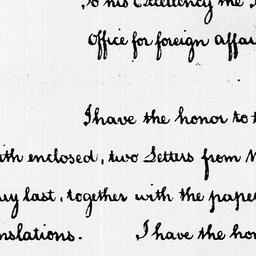 To his Excellency the
Office for foreign affai
I have the honor to t
ith enclosed, two Letters from M
uy last, together with the pape
nslations. I have the hon